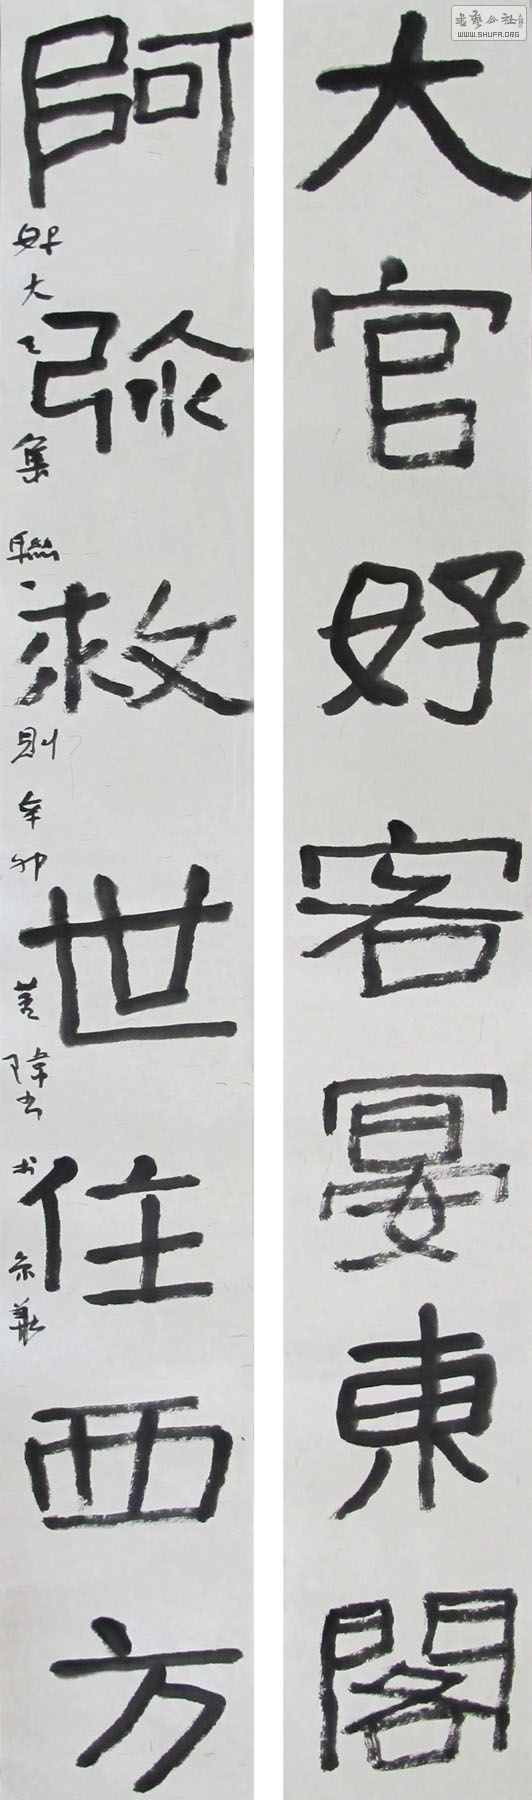 書藝公社
WWW.SHUFA.ORG
大官好客宴東閣
阿弥救世住西方
好大王集聯一則辛卯